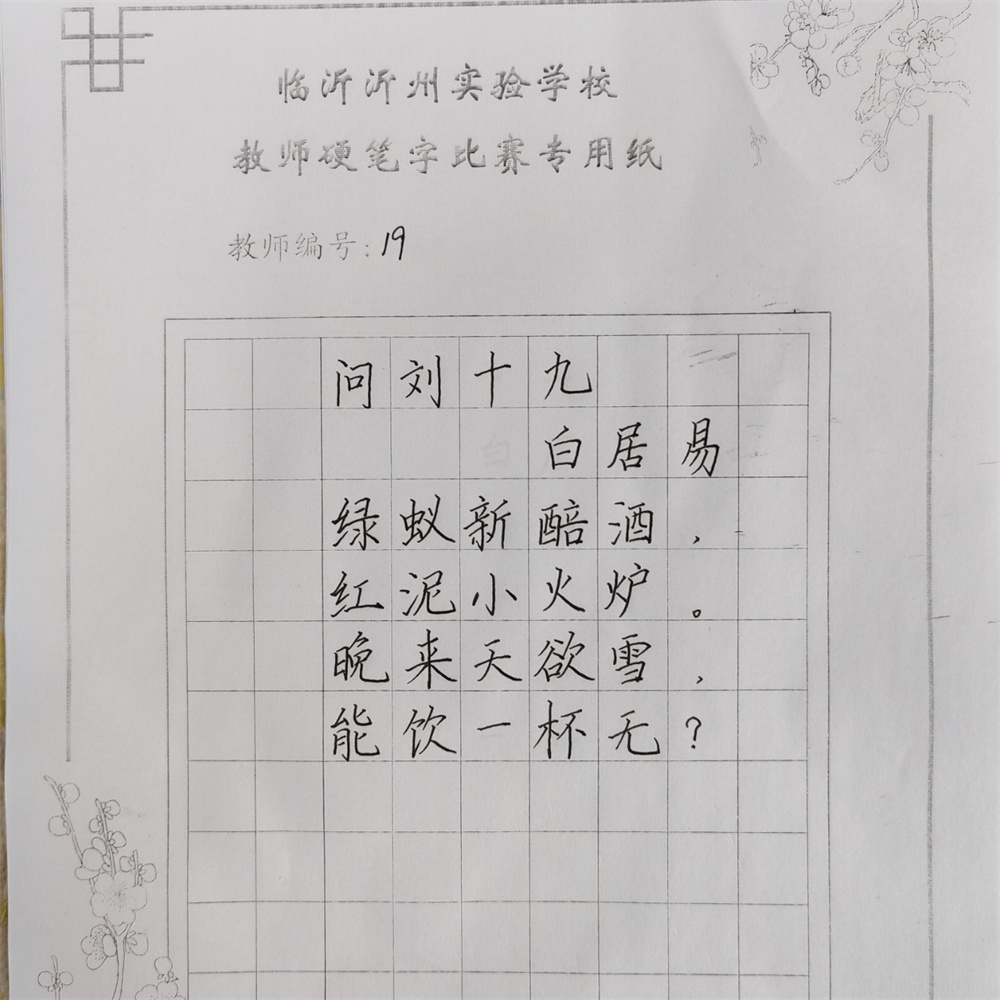 临沂沂州实验学校
教师硬笔字比赛专用纸
教师编号:19
问刘十九
白居易
绿蚁新醅酒,
红泥小火炉。
晚来天欲雪,
能饮一杯无?